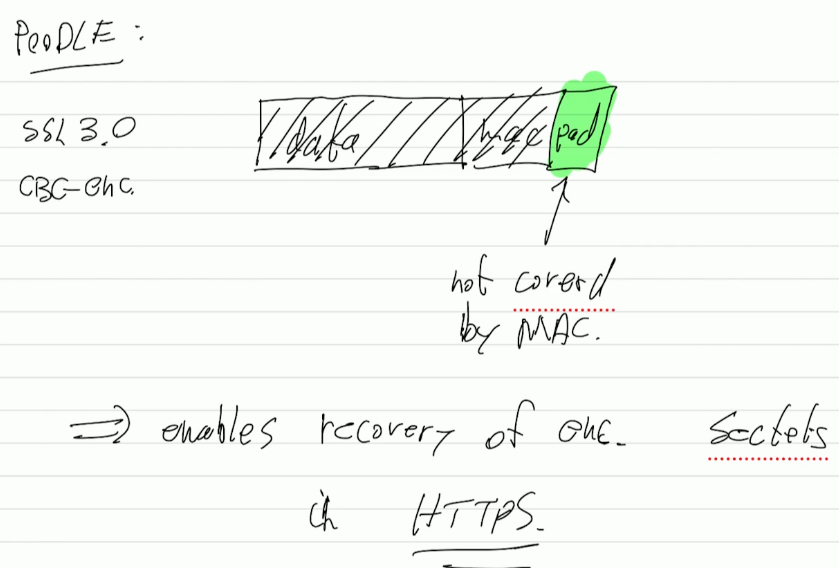 POODLE :
SSL 3.0
CBC-enc.
data mac pad
not coverd
by MAC.
⇒ enables recovery of enc. secrets
in HTTPS.